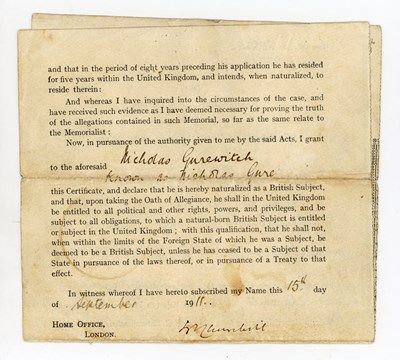 and that in the period of eight years preceding his application he has resided
for five years within the United Kingdom, and intends, when naturalized, to
reside therein:
And whereas I have inquired into the circumstances of the case, and
have received such evidence as I have deemed necessary for proving the truth
of the allegations contained in such Memorial, so far as the same relate to
the Memorialist:
Now, in pursuance of the authority given to me by the said Acts, I grant
to the aforesaid Nicholas Gurewitch
known as Nicholas Gure
this Certificate, and declare that he is hereby naturalized as a British Subject,
and that, upon taking the Oath of Allegiance, he shall in the United Kingdom
be entitled to all political and other rights, powers, and privileges, and be
subject to all obligations, to which a natural-born British Subject is entitled
or subject in the United Kingdom; with this qualification, that he shall not,
when within the limits of the Foreign State of which he was a Subject, be
deemed to be a British Subject, unless he has ceased to be a Subject of that
State in pursuance of the laws thereof, or in pursuance of a Treaty to that
effect.
In witness whereof I have hereto subscribed my Name this 15th day
of September 1911.
HOME OFFICE,
LONDON.
WSChurchill